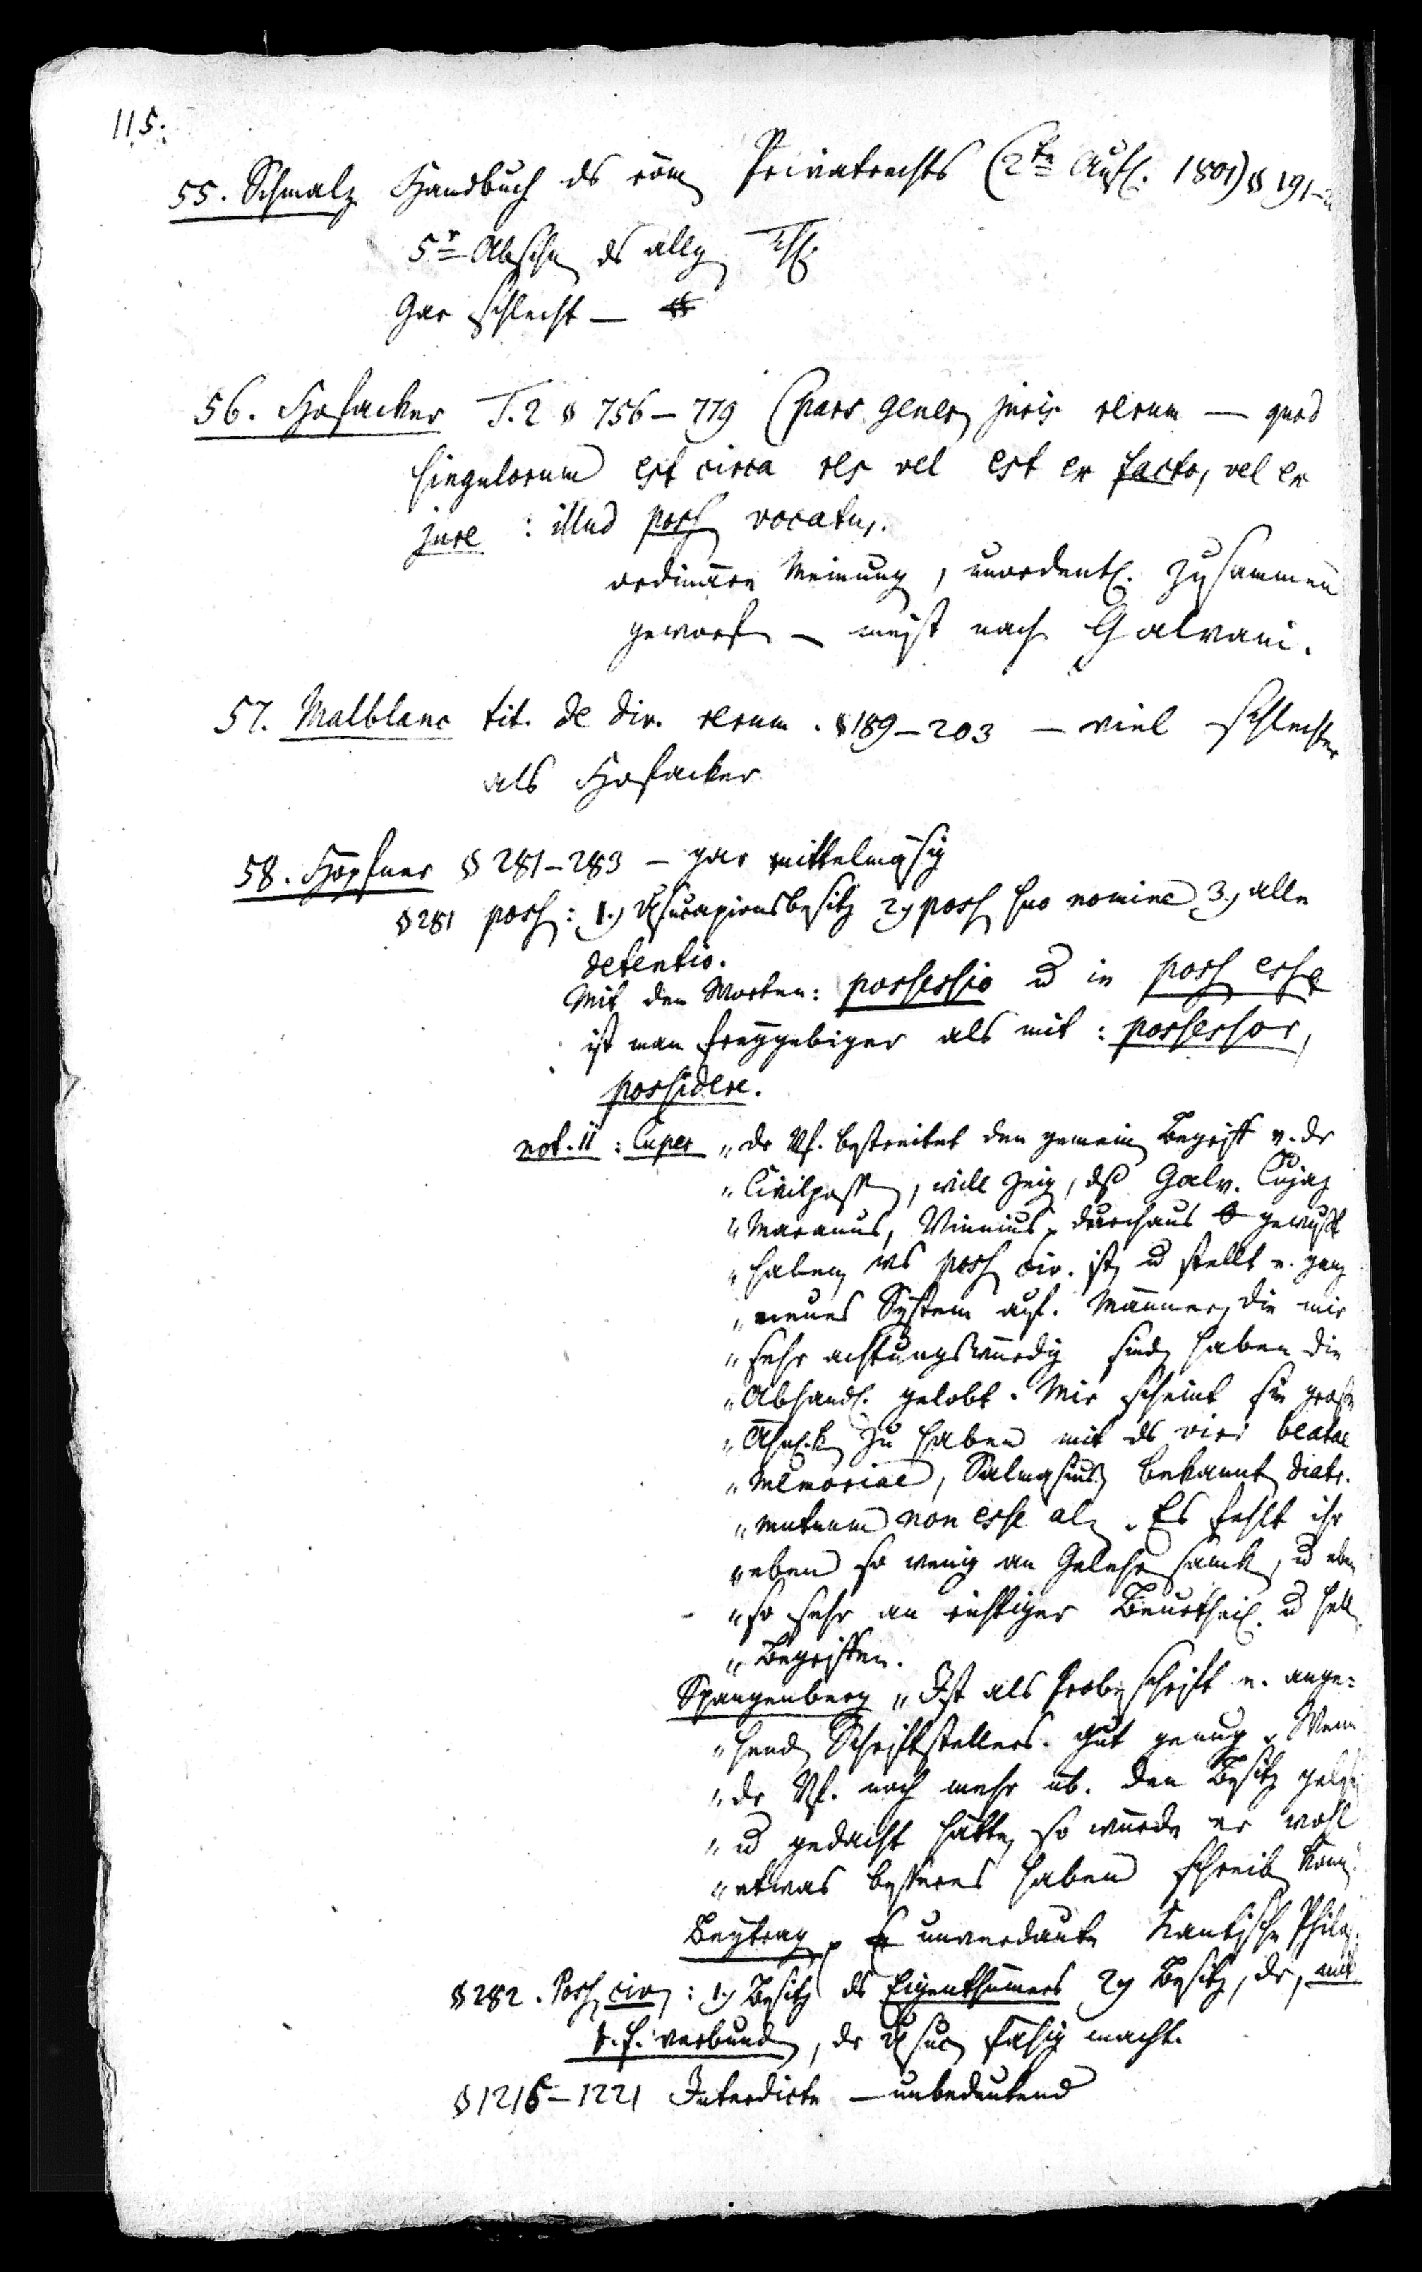 115.
55. Schmalz Handbuch ds röm Privatrechts (2te Aufl. 1801) § 191-2
5r Abschn ds allg Th.
Gar schlecht —
56. Hofacker T. 2 § 756-779 (pars gener juris rerum — quod
singulorum est circa res vel est ex facto, vel ex
jure : illud poss vocatur.
ordinäre Meinung, unordentl. zusammen
geworf — meist nach Galvani.
57. Malblanc tit. de div. rerum. § 189-203 — viel schlechter
als Hofacker
58. Höpfner § 281-283 — gar mittelmäsig
§ 281 poss : 1.) Usucapionsbesitz 2.) poss suo nomine 3.) alle
detentio.
Mit den Worten: possessio u in poss esse
ist man freygebiger als mit : possessor,
possidere.
not. 11 : Cuper „dr Vf. bestreitet den gemein Begriff v. dr
„Civilposs, will zeig, dß Galv. Cujaz
„Maranus, Vinnius durchaus gewußt
„haben ws poss civ. ist, u stellt e. ganz
„neues System auf. Männer, die mir
„sehr achtungswürdig sind, haben die
„Abhandl. gelobt. Mir scheint sie große
„Ähnl.k zu haben mit ds viri beatae
„memoriae, Salmasius bekannt diatr.
„mutuum non esse al. Es fehlt ihr
„eben so wenig an Gelehrsamk, u eben
„so sehr an richtiger Beurtheil. u hell
„Begriffen.
Spangenberg „Ist als Probeschrift e. ange-
„hend Schriftstellers gut genug. Wenn
„dr Vf. noch mehr üb. den Besitz geles
„u gedacht hätte, so würde er wohl
„etwas besseres haben schreib könn
Beytrag unverdaute Kantische Philos.
§ 282. Poss civ : 1.) Besitz ds Eigenthümers 2.) Besitz, dr, mit
b. f. verbund, dr Usuc fähig macht.
§ 1216-1221 Interdicte — unbedeutend